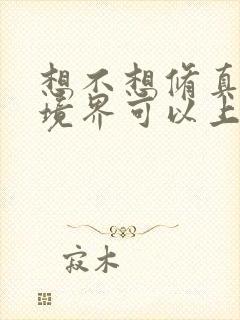 想不想修真
境界可以上
寂木